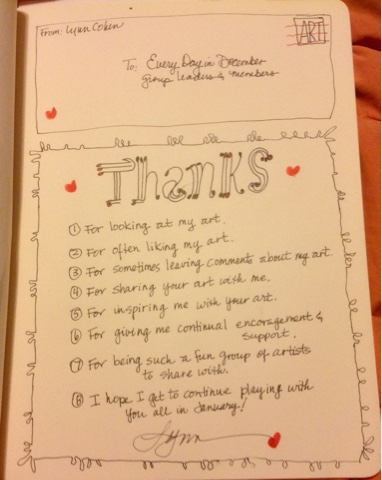 From: Lynn Cohen
ART
To: Every Day in December
group leaders & members
Thanks
① For looking at my art.
② For often liking my art.
③ For sometimes leaving comments about my art.
④ For sharing your art with me.
⑤ For inspiring me with your art.
⑥ For giving me continual encoragement &
support.
⑦ For being such a fun group of artists
to share with.
⑧ I hope I get to continue playing with
you all in January!
Lynn